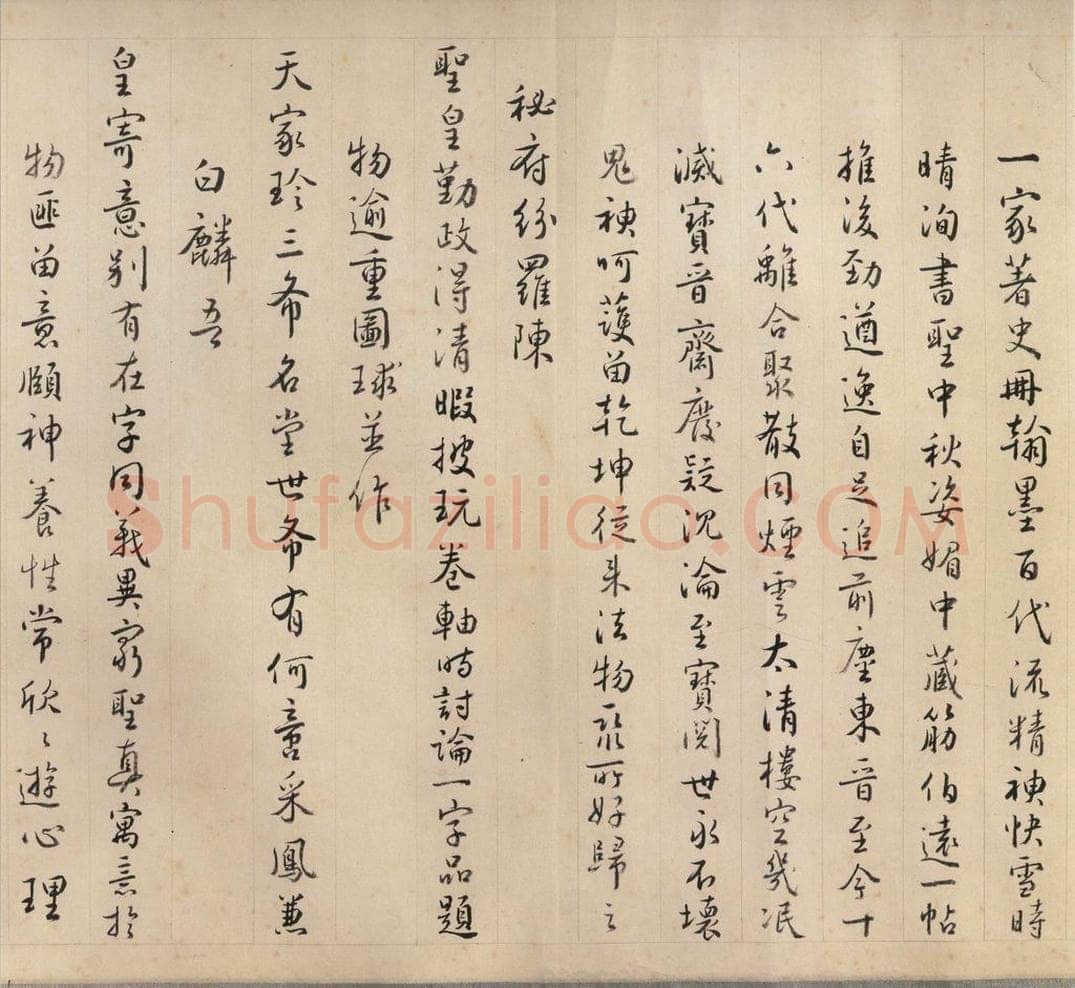 一家著史冊翰墨百代流精神快雪時
晴洵書聖中秋姿媚中藏筋伯遠一帖
推後勁遒逸自足追前塵東晉至今十
六代離合聚散同煙雲太清樓空幾泯
滅寶晉齋廢疑沉淪至寶閱世永不壞
鬼神呵護留乾坤從来法物聚所好歸之
秘府紛羅陳
聖皇勤政得清暇披玩卷軸時討論一字品題
物逾重圖球並作
天家珍三希名堂世希有何啻采鳳兼
白麟吾
皇寄意别有在字同義異窮聖真寓意於
物匪留意頤神養性常欣〻遊心理
Shufaziliao.COM